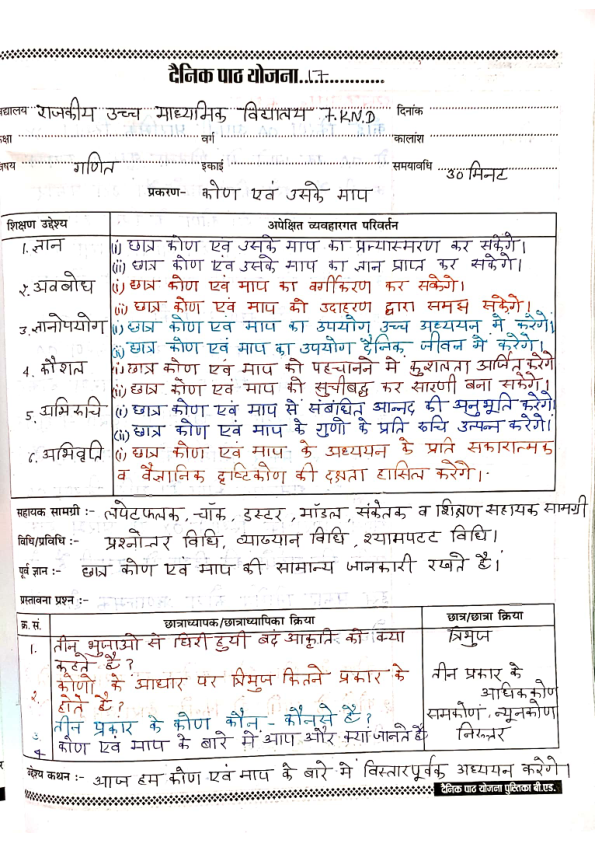 दैनिक पाठ योजना..17............
द्यालय राजकीय उच्च माध्यमिक विद्यालय 7.K.N.D दिनांक
क्षा वर्ग कालांश
षय गणित इकाई समयावधि 30 मिनट
प्रकरण- कोण एवं उसके माप
शिक्षण उद्देश्य अपेक्षित व्यवहारगत परिवर्तन
1. ज्ञान (i) छात्र कोण एवं उसके माप का प्रत्यास्मरण कर सकेंगे।
(ii) छात्र कोण एवं उसके माप का ज्ञान प्राप्त कर सकेंगे।
2. अवबोध (i) छात्र कोण एवं माप का वर्गीकरण कर सकेंगे।
(ii) छात्र कोण एवं माप को उदाहरण द्वारा समझ सकेंगे।
3. ज्ञानोपयोग (i) छात्र कोण एवं माप का उपयोग उच्च अध्ययन में करेंगे।
(ii) छात्र कोण एवं माप का उपयोग दैनिक जीवन में करेंगे।
4. कौशल (i) छात्र कोण एवं माप को पहचानने में कुशलता अर्जित करेंगे
(ii) छात्र कोण एवं माप की सुचीबद्ध कर सारणी बना सकेंगे।
5. अभिरुचि (i) छात्र कोण एवं माप से संबंधित आनन्द की अनुभूति करेंगे।
(ii) छात्र कोण एवं माप के गुणो के प्रति रुचि उत्पन्न करेंगे।
6. अभिवृति (i) छात्र कोण एवं माप के अध्ययन के प्रति सकारात्मक
व वैज्ञानिक दृष्टिकोण की दक्षता हासिल करेंगे।
सहायक सामग्री :- लपेटफलक, चॉक, डस्टर, मॉडल, संकेतक व शिक्षण सहायक सामग्री
विधि/प्रविधि :- प्रश्नोत्तर विधि, व्याख्यान विधि, श्यामपटट विधि।
पूर्व ज्ञान :- छात्र कोण एवं माप की सामान्य जानकारी रखते है।
प्रस्तावना प्रश्न :-
क्र. सं. छात्राध्यापक/छात्राध्यापिका क्रिया छात्र/छात्रा क्रिया
1. तीन भुजाओ से घिरी हुयी बंद आकृति को क्या त्रिभुज
कहते है?
2 कोणो के आधार पर त्रिभुज कितने प्रकार के तीन प्रकार के
होते है? अधिककोण
3 तीन प्रकार के कोण कौन - कौनसे है? समकोण, न्यूनकोण
4 कोण एवं माप के बारे में आप और क्या जानते है निरुत्तर
उद्देश्य कथन :- आज हम कोण एवं माप के बारे में विस्तारपूर्वक अध्ययन करेंगे।
दैनिक पाठ योजना पुस्तिका बी.एड.